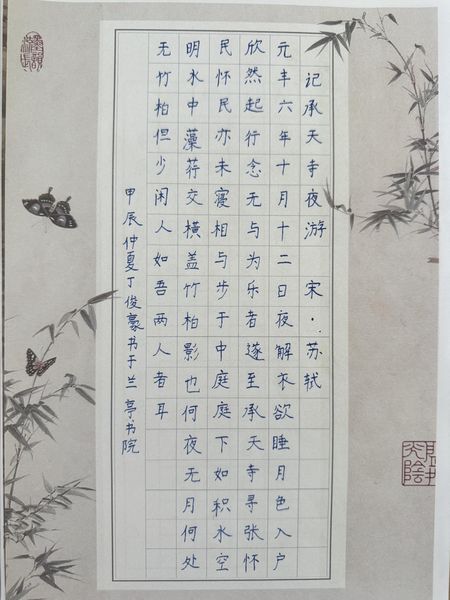 记承天寺夜游 宋·苏轼
元丰六年十月十二日夜解衣欲睡月色入户
欣然起行念无与为乐者遂至承天寺寻张怀
民怀民亦未寝相与步于中庭庭下如积水空
明水中藻荇交横盖竹柏影也何夜无月何处
无竹柏但少闲人如吾两人者耳
甲辰仲夏丁俊豪书于兰亭书院